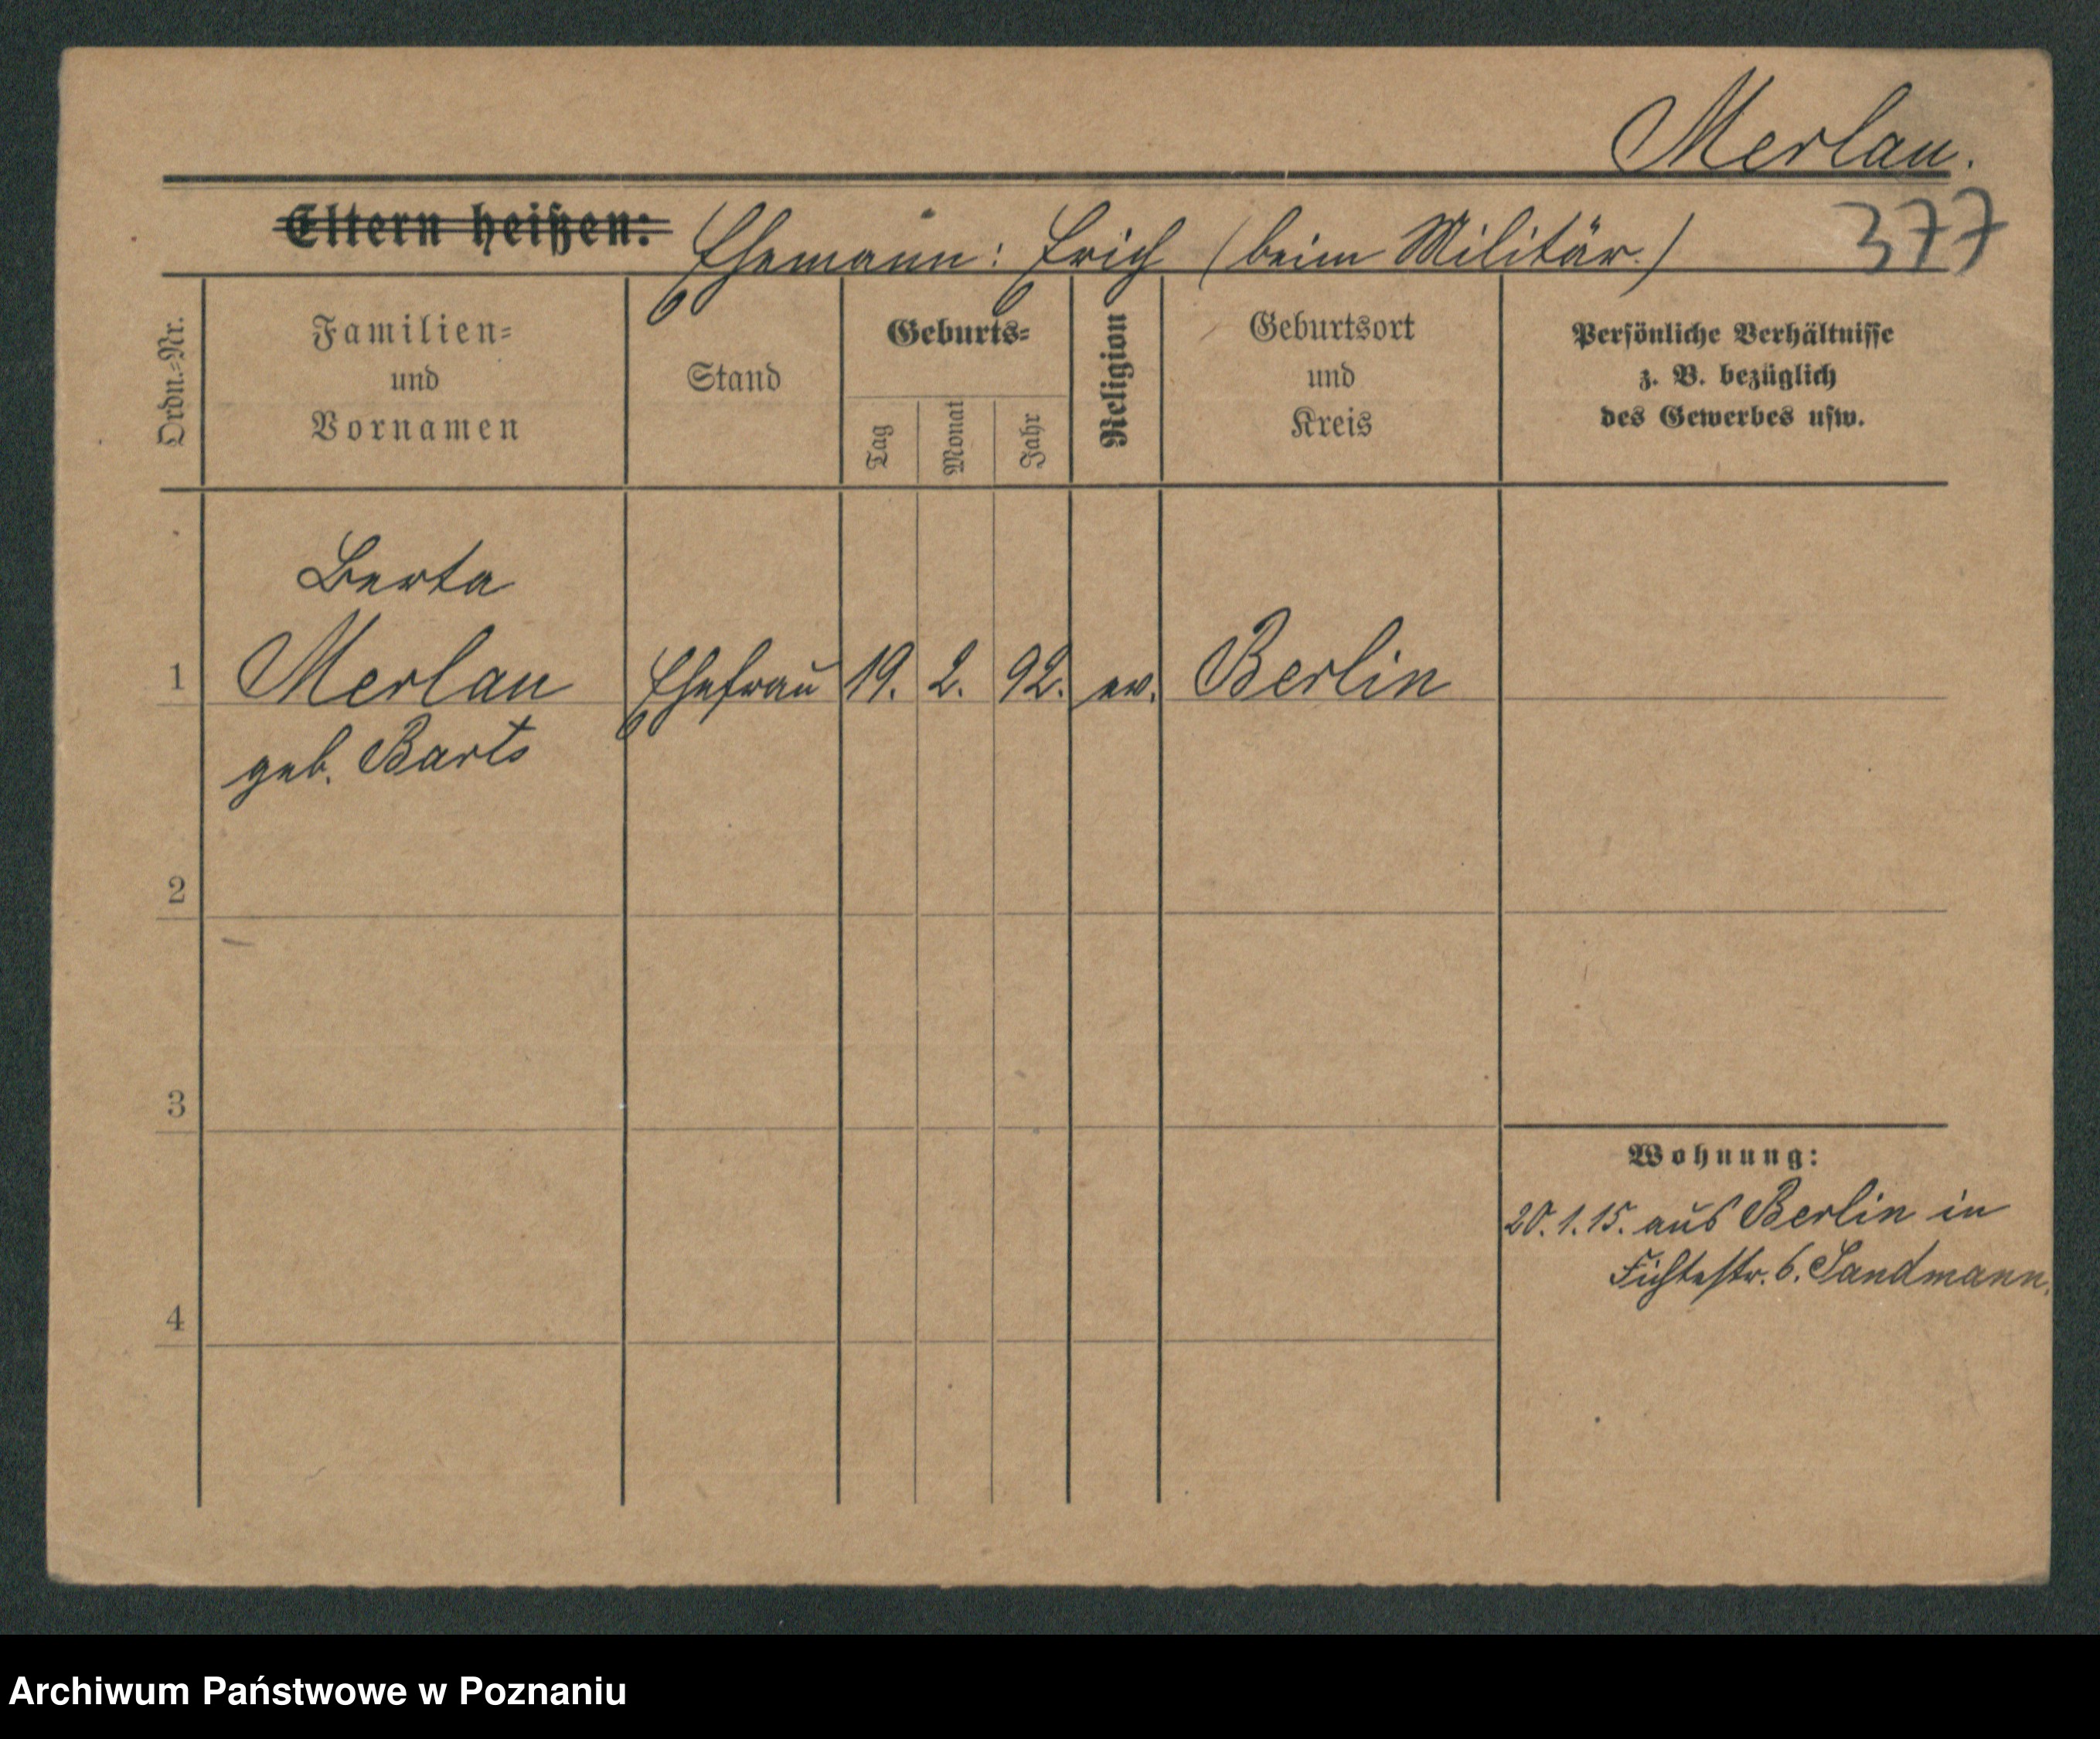 Merlau.
377
Eltern heißen: Ehemann: Erich (beim Militär.)
Ordn.-Nr.
Familien-
und
Vornamen
Stand
Geburts-
Tag
Monat
Jahr
Religion
Geburtsort
und
Kreis
Persönliche Verhältnisse
z. B. bezüglich
des Gewerbes usw.
Berta
1 Merlau Ehefrau 19. 2. 92. ev. Berlin
geb. Barts
2
3
4
Wohnung:
20.1.15. aus Berlin in
Fichtestr. 6. Sandmann.
Archiwum Państwowe w Poznaniu